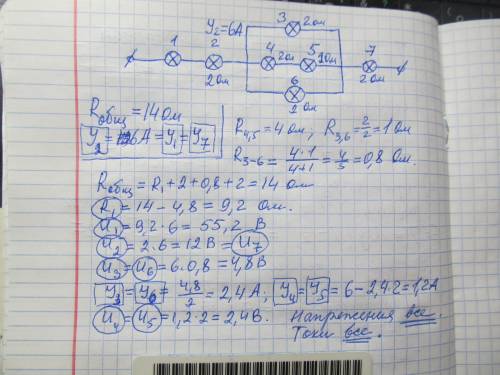 У₂=6А
3
2ом
1
2
2ом
4
2ом
5
2ом
6
2ом
7
2ом
Rобщ=14Ом
У₂=6А=У₁=У₇
R₄,₅=4ом; R₃,₆=2/2=1Ом
R₃₋₆=4·1/4+1=4/5=0,8 Ом.
Rобщ=R₁+2+0,8+2=14 Ом
R₁=14-4,8=9,2 Ом.
И₁=9,2·6=55,2 В
И₂=2·6=12В=И₇
И₃=И₆=6·0,8=4,8В
У₃=У₆=4,8/2=2,4А, У₄=У₅=6-2,4·2=1,2А
И₄=И₅=1,2·2=2,4В. Напряжения все.
Токи все.